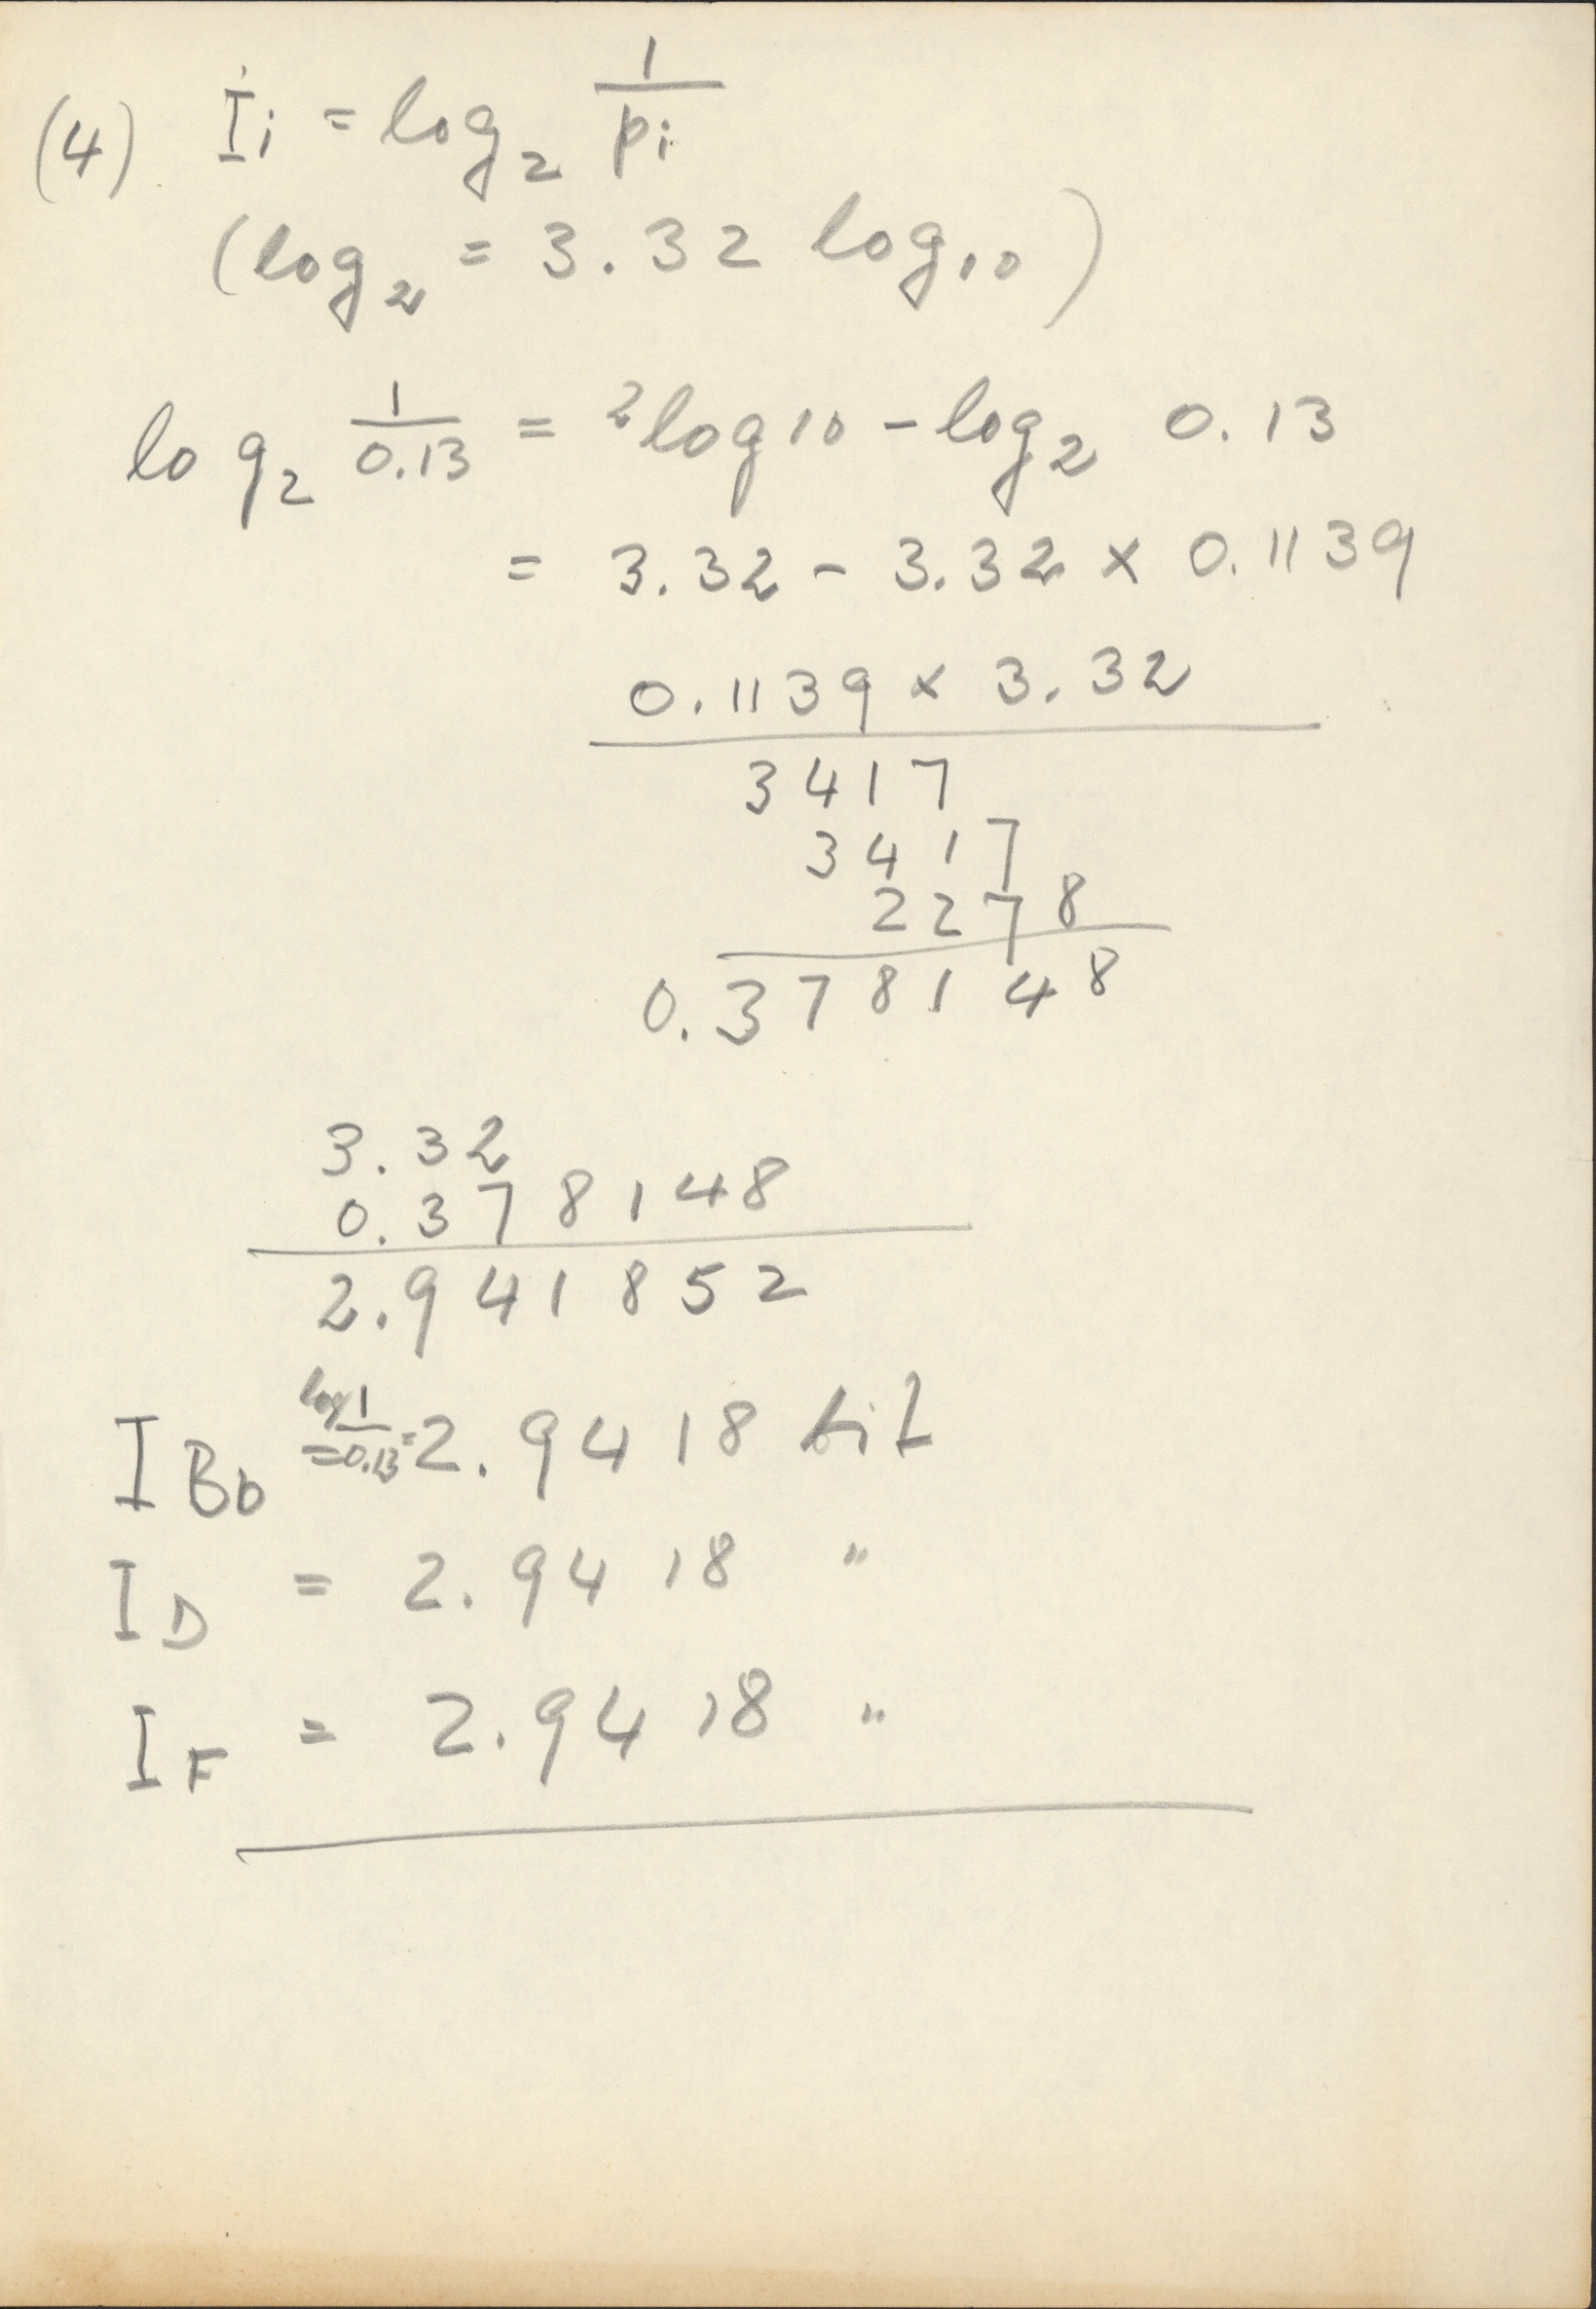 (4) Ii = log₂ 1/pi
(log₂ = 3.32 log₁₀)
log₂ 1/0.13 = ²log10 - log₂ 0.13
= 3.32 - 3.32 × 0.1139
0.1139 × 3.32
3417
3417
2278
0.378148
3.32
0.378148
2.941852
I Bb = log 1/0.13 = 2.9418 bit
I D = 2.9418 〃
I F = 2.9418 〃